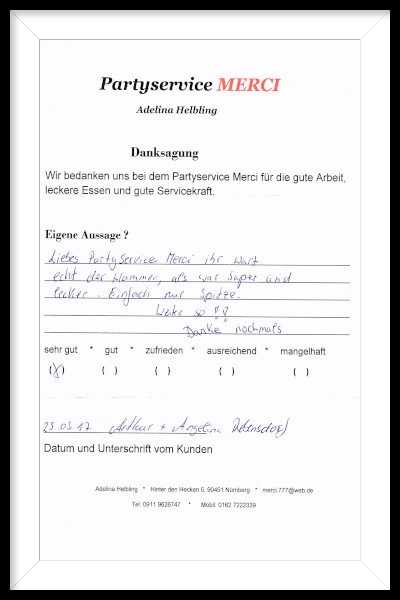 Partyservice MERCI
Adelina Helbling
Danksagung
Wir bedanken uns bei dem Partyservice Merci für die gute Arbeit,
leckere Essen und gute Servicekraft.
Eigene Aussage ?
Liebes PartyService Merci ihr wart
echt der Hammer, als war super und
lecker. Einfach nur Spitze.
Weiter so !!
Danke nochmals
sehr gut * gut * zufrieden * ausreichend * mangelhaft
(X) ( ) ( ) ( ) ( )
25.03.17 Arthur + Angelina
Datum und Unterschrift vom Kunden
Adelina Helbling * Hinter den Hecken 5, 90451 Nürnberg * merci.777@web.de
Tel: 0911 9626747 * Mobil: 0162 7222339